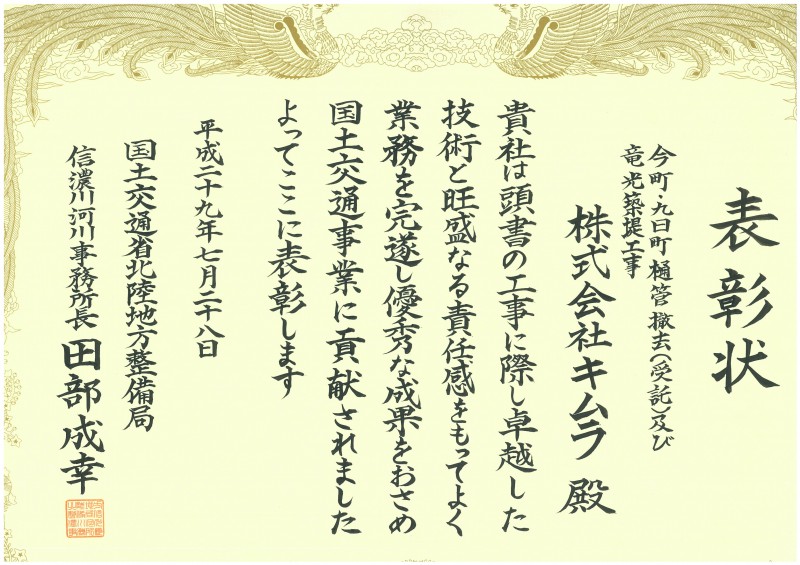 表彰状
今町・九日町樋管撤去(受託)及び
竜光築堤工事
株式会社キムラ 殿
貴社は頭書の工事に際し卓越した
技術と旺盛なる責任感をもってよく
業務を完遂し優秀な成果をおさめ
国土交通事業に貢献されました
よってここに表彰します
平成二十九年七月二十八日
国土交通省北陸地方整備局
信濃川河川事務所長 田部成幸